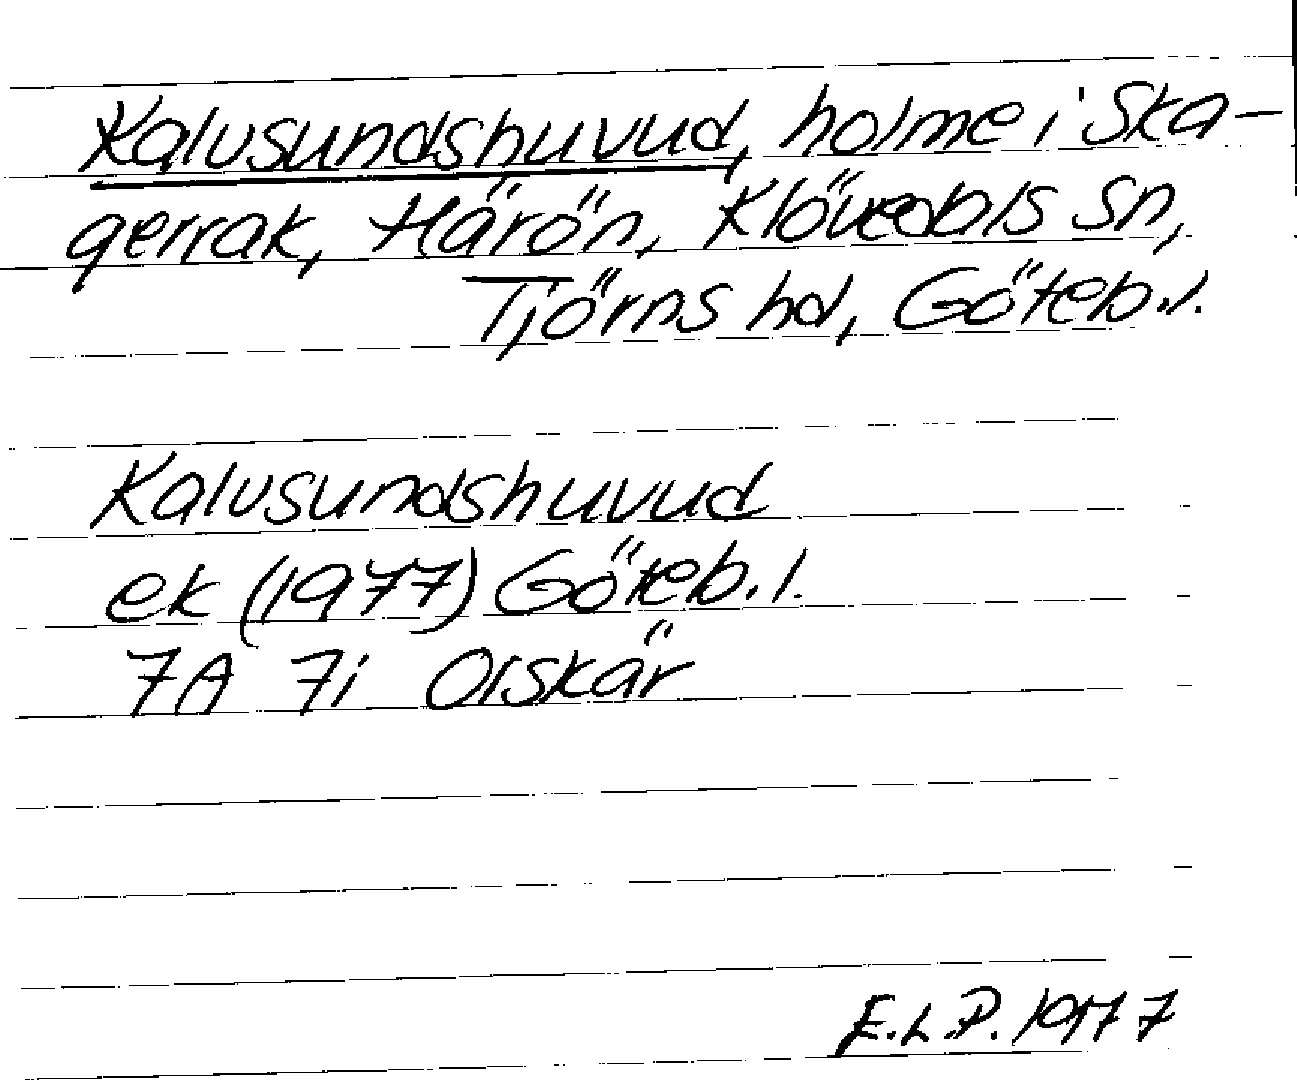 Kalvsundshuvud, holme i Ska-
gerrak, Härön, Klövedals sn,
Tjörns hd, Göteb.l.
Kalvsundshuvud
ek (1977) Göteb. l.
7A 7i Olskär
E.L.P. 1977